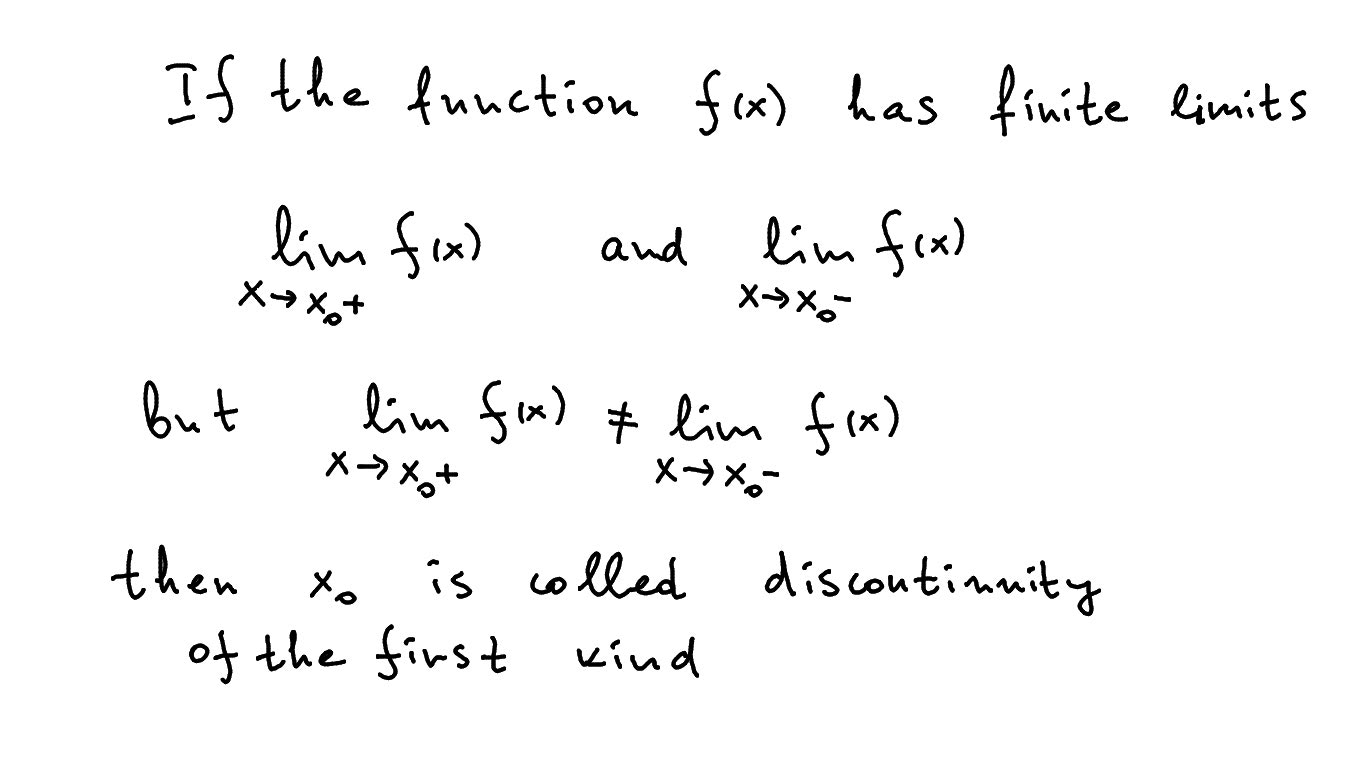 If the function f(x) has finite limits
lim f(x) and lim f(x)
x→x₀+ x→x₀-
but lim f(x) ≠ lim f(x)
x→x₀+ x→x₀-
then x₀ is called discontinuity
of the first kind